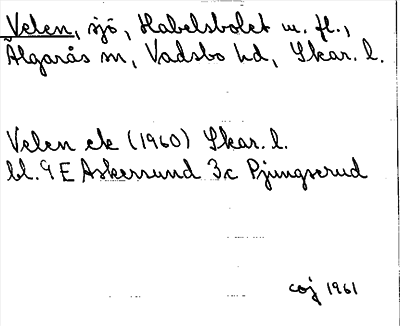 Velen, sjö, Habelsbolet m. fl.,
Älgarås sn, Vadsbo hd, Skar. l.
Velen ek (1960) Skar. l.
bl. 9 E Askersund 3c Pjungserud
coj 1961